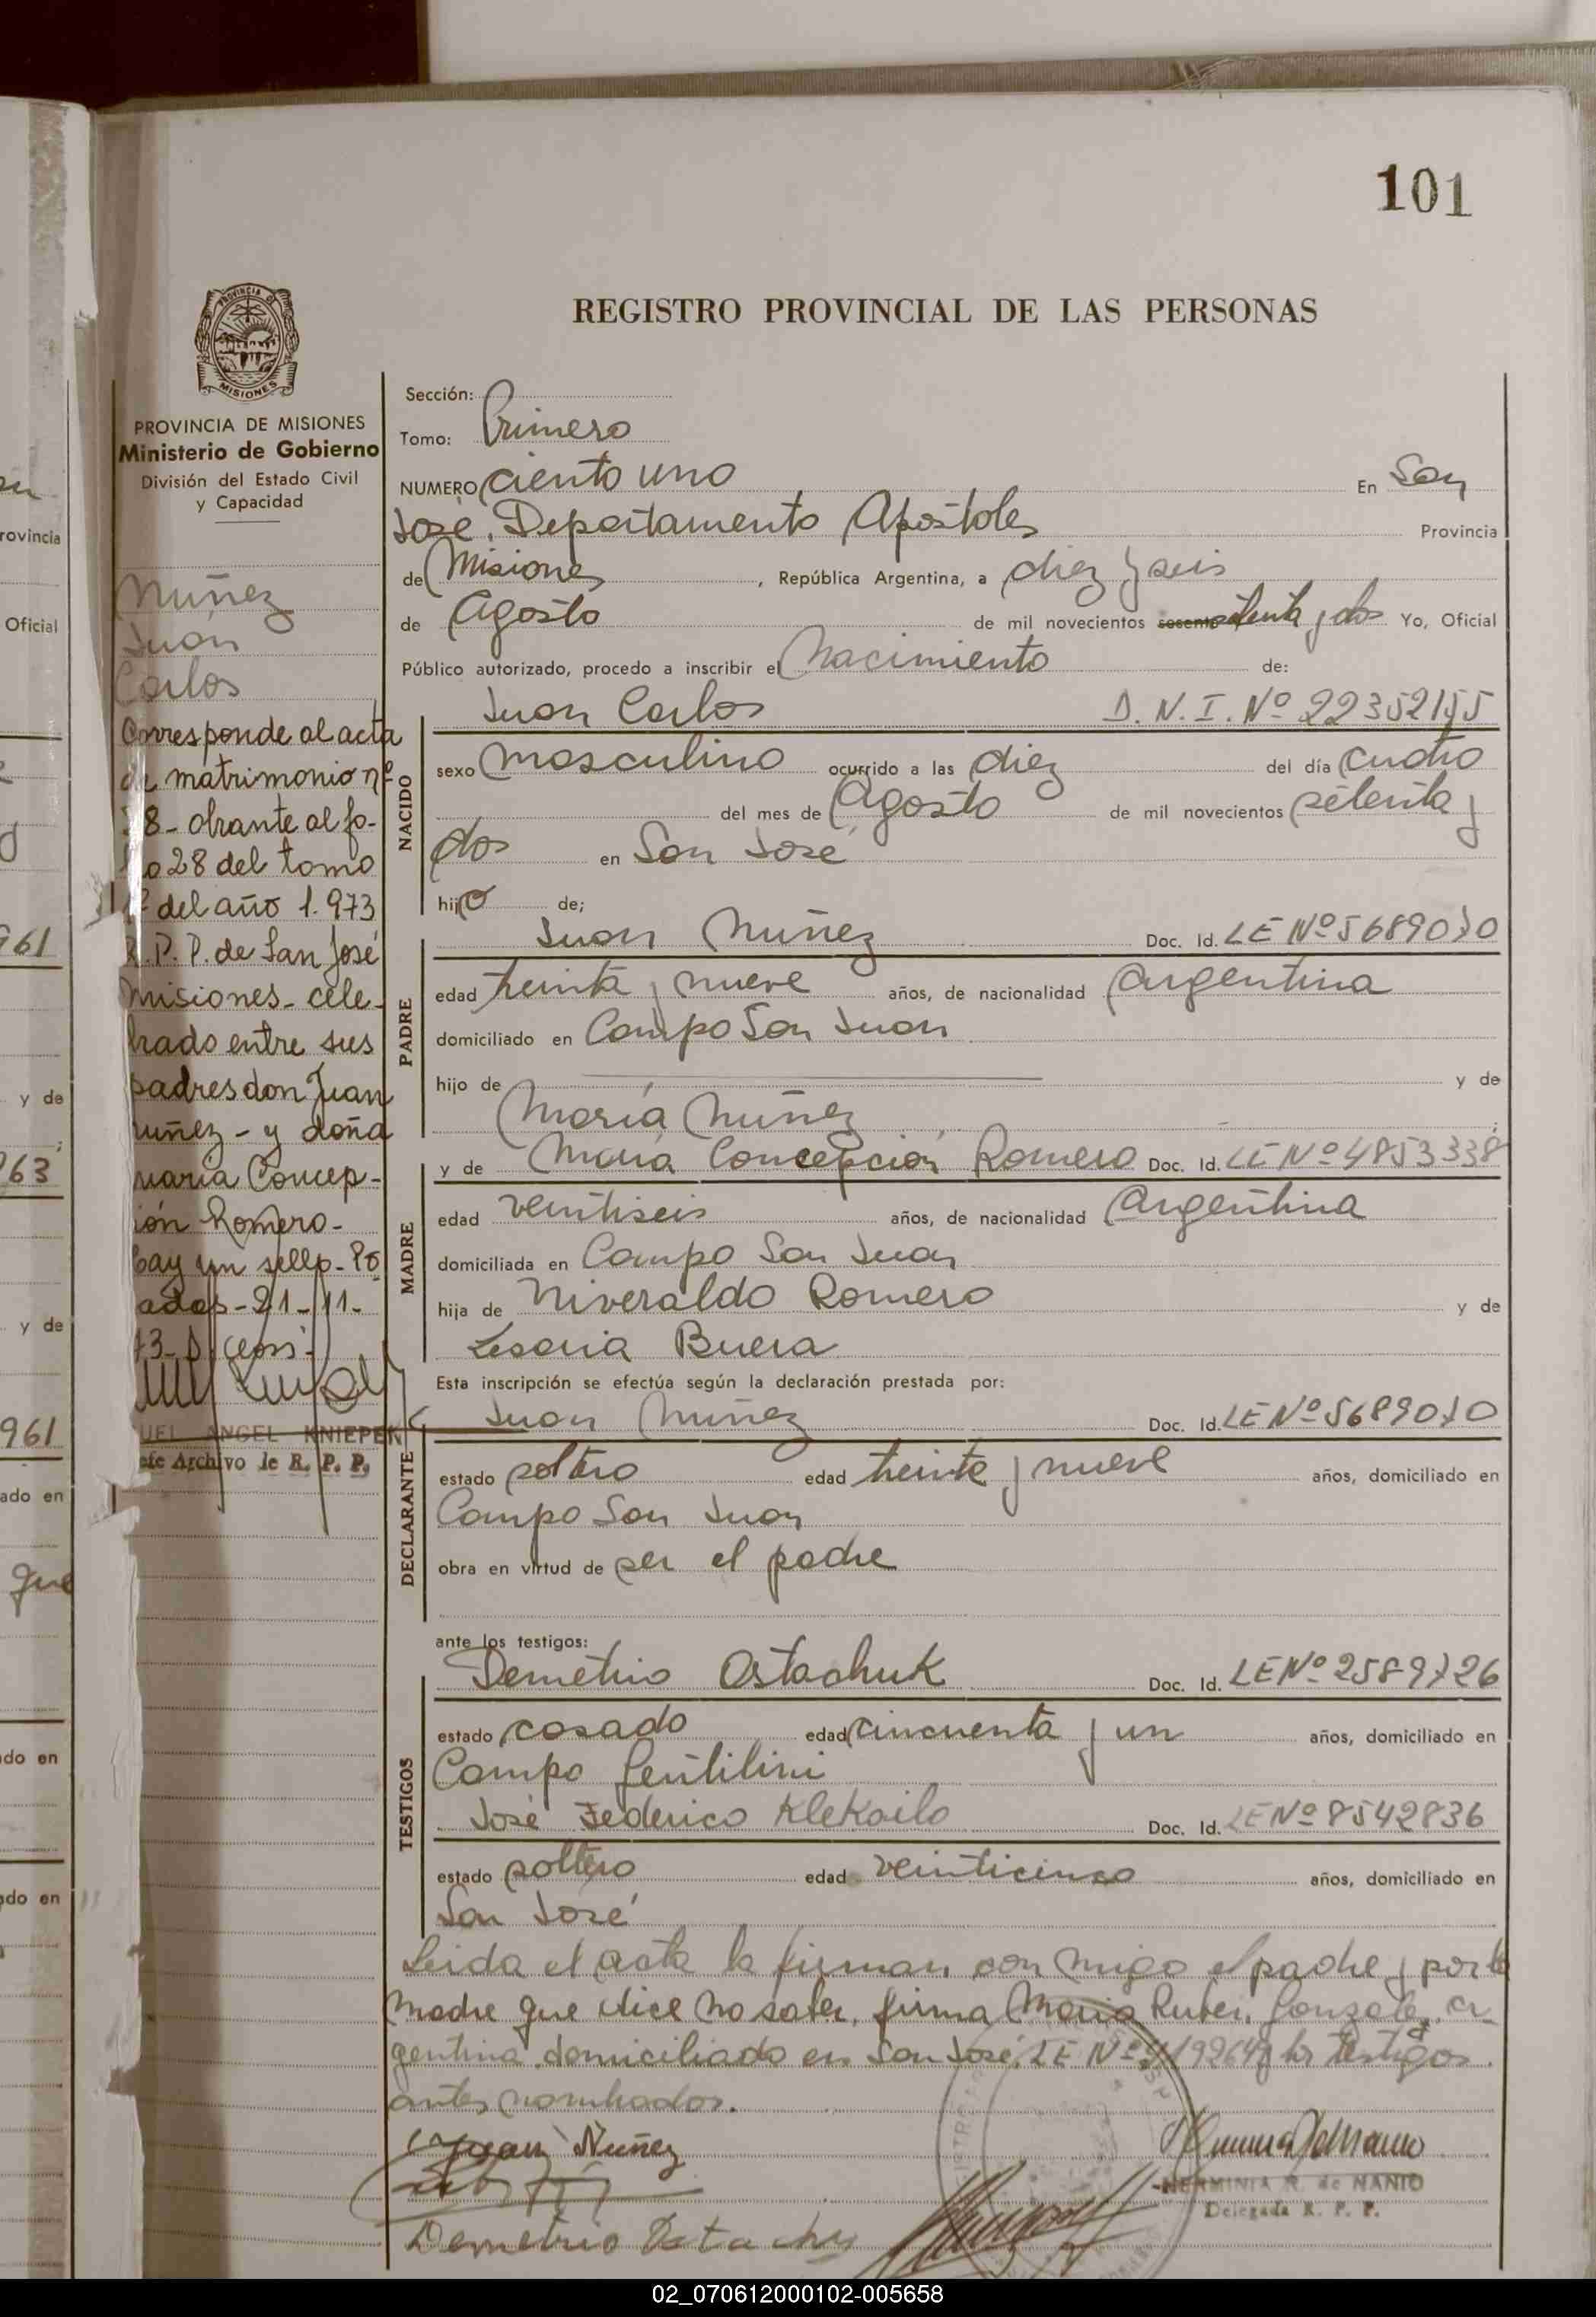 101
REGISTRO PROVINCIAL DE LAS PERSONAS
PROVINCIA DE MISIONES
Ministerio de Gobierno
División del Estado Civil
y Capacidad
Nuñez
Juan
Carlos
Corresponde al acta
de matrimonio nº
28 - obrante al fo-
lio 28 del tomo
1º del año 1.973
R.P.P. de San José
Misiones - cele-
brado entre sus
padres don Juan
Nuñez - y doña
María Concep-
ción Romero -
Hay un sello - Po
sadas - 21 - 11 -
73 -
ANGEL KNIEPEK
Jefe Archivo de R. P. P.
Sección:
Tomo: Primero
NUMERO ciento uno En San
José, Departamento Apóstoles Provincia
de Misiones, República Argentina, a diez y seis
de Agosto de mil novecientos sesenta setenta y dos Yo, Oficial
Público autorizado, procedo a inscribir el Nacimiento de:
NACIDO
Juan Carlos D.N.I. Nº 22352155
sexo masculino ocurrido a las diez del día cuatro
del mes de Agosto de mil novecientos setenta y
dos en San José
hijo de;
PADRE
Juan Nuñez Doc. Id. LE Nº 5689070
edad treinta y nueve años, de nacionalidad Argentina
domiciliado en Campo San Juan
hijo de y de
María Nuñez
MADRE
y de María Concepción Romero Doc. Id. LE Nº 4853338
edad veintiseis años, de nacionalidad Argentina
domiciliada en Campo San Juan
hija de Niveraldo Romero y de
Lesaria Buera
Esta inscripción se efectúa según la declaración prestada por:
DECLARANTE
Juan Nuñez Doc. Id. LE Nº 5689070
estado soltero edad treinta y nueve años, domiciliado en
Campo San Juan
obra en virtud de ser el padre
ante los testigos:
TESTIGOS
Demetrio Ostachuk Doc. Id. LE Nº 2589726
estado casado edad cincuenta y un años, domiciliado en
Campo Gentilini
José Federico Klekailo Doc. Id. LE Nº 8542836
estado soltero edad veinticinco años, domiciliado en
San José
Leida el acta la firman con migo el padre y por la
madre que dice no saber, firma María Ruber Gonzalez, ar
gentina domiciliado en San José. LE Nº y los testigos
antes nombrados.
Juan Nuñez
HERMINIA R. de NANIO
Delegada R. P. P.
Demetrio Ostachuk
02_070612000102-005658